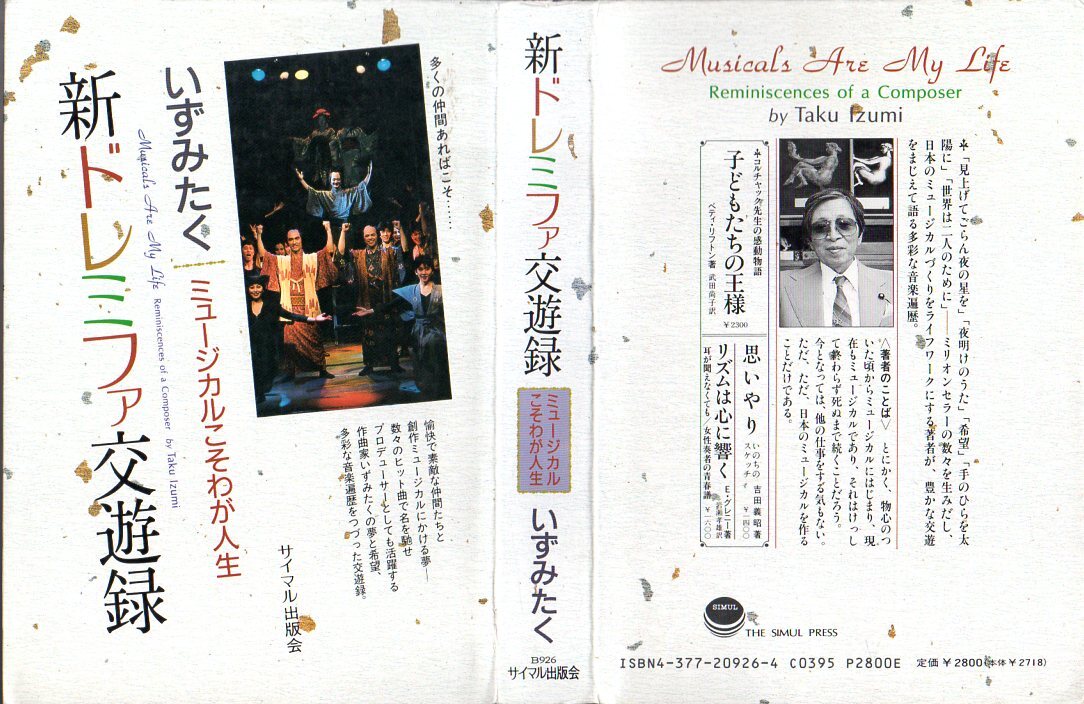 新ドレミファ交遊録
Musicals Are My Life Reminiscences of a Composer by Taku Izumi
いずみたく
ミュージカルこそわが人生
多くの仲間あればこそ……
愉快で素敵な仲間たちと
創作ミュージカルにかける夢――
数々のヒット曲で名を馳せ
プロデューサーとしても活躍する
作曲家いずみたくの夢と希望、
多彩な音楽遍歴をつづった交遊録。
サイマル出版会
新ドレミファ交遊録
ミュージカル
こそわが人生
いずみたく
B926
サイマル出版会
Musicals Are My Life
Reminiscences of a Composer
by Taku Izumi
＊「見上げてごらん夜の星を」「夜明けのうた」「希望」「手のひらを太
陽に」「世界は二人のために」――ミリオンセラーの数々を生みだし、
日本のミュージカルづくりをライフワークにする著者が、豊かな交遊
をまじえて語る多彩な音楽遍歴。
＜著者のことば＞ とにかく、物心のつ
いた頃からミュージカルにはじまり、現
在もミュージカルであり、それはけっし
て終わらず死ぬまで続くことだろう。
今となっては、他の仕事をする気もない。
ただ、ただ、日本のミュージカルを作る
ことだけである。
＊コルチャック先生の感動物語
子どもたちの王様
ベティ・リフトン著 武田尚子訳
￥2300
思いやり
いのちの
スケッチ
吉田義昭著
￥一四〇〇
リズムは心に響く
E・グレニー著
岩瀬孝雄訳
耳が聞えなくても/女性奏者の青春譜
￥一六〇〇
SIMUL
THE SIMUL PRESS
ISBN4-377-20926-4 C0395 P2800E 定価￥2800(本体￥2718)